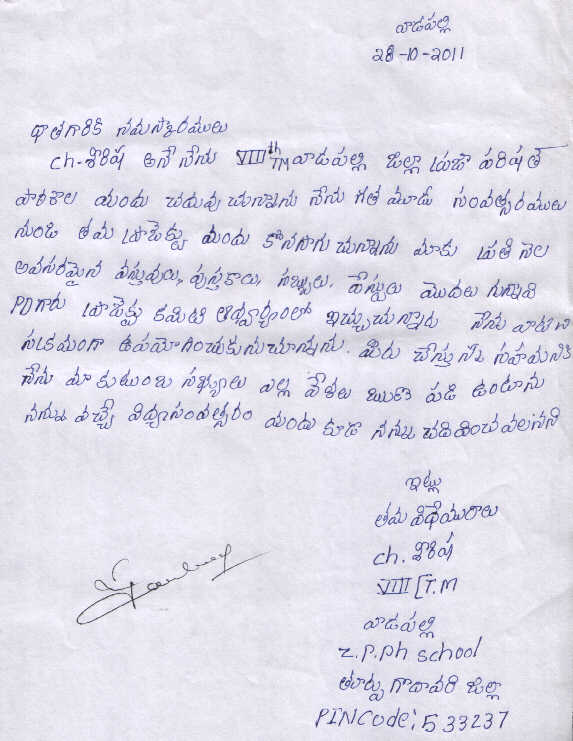 వాడపల్లి
28-10-2011
ధాతగారికి నమస్కారములు
ch-శిరిష అనే నేను VIIIth TM వాడపల్లి జిల్లా ప్రజా పరిషత్
పాఠశాల యందు చదువు చున్నాను నేను గత మూడు సంవత్సరములు
నుండి తమ ప్రాజెక్టు యందు కొనసాగు చున్నాను మాకు ప్రతి నెల
అవసరమైన వస్తువులు, పుస్తకాలు, సబ్బులు, పేస్టులు మొదలగునవి
PDగారు ప్రాజెక్టు కమిటి ఆధ్వర్యంలో ఇచ్చుచున్నారు నేను వాటిని
సక్రమంగా ఉపయోగించుకునుచున్నాను. మీరు చేస్తున్న సహాయనికి
నేను మా కుటుంబ సభ్యులు ఎల్ల వేళల ఋణ పడి ఉంటాను
నన్ను వచ్చే విద్యాసంవత్సరం యందు కూడా నన్ను చదివించవలసినది
ఇట్లు
తమ విధేయురాలు
ch. శిరిష
VIII [T.M
వాడపల్లి
Z.P.Ph school
తూర్పు గోదావరి జిల్లా
PINCode: 533237